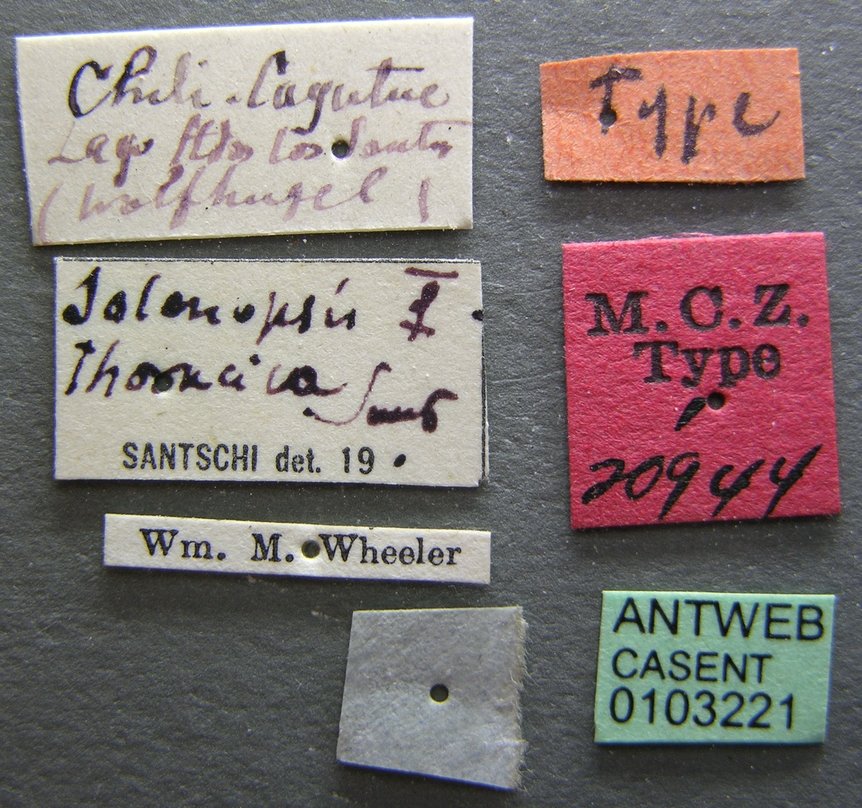 Chili - Cayutue
Lago ttos los Santos
(Wolfhugel)
Type
Solenopsis ☿
Thoracica Sants
SANTSCHI det. 19
M.C.Z.
Type
1
20944
Wm. M. Wheeler
ANTWEB
CASENT
0103221